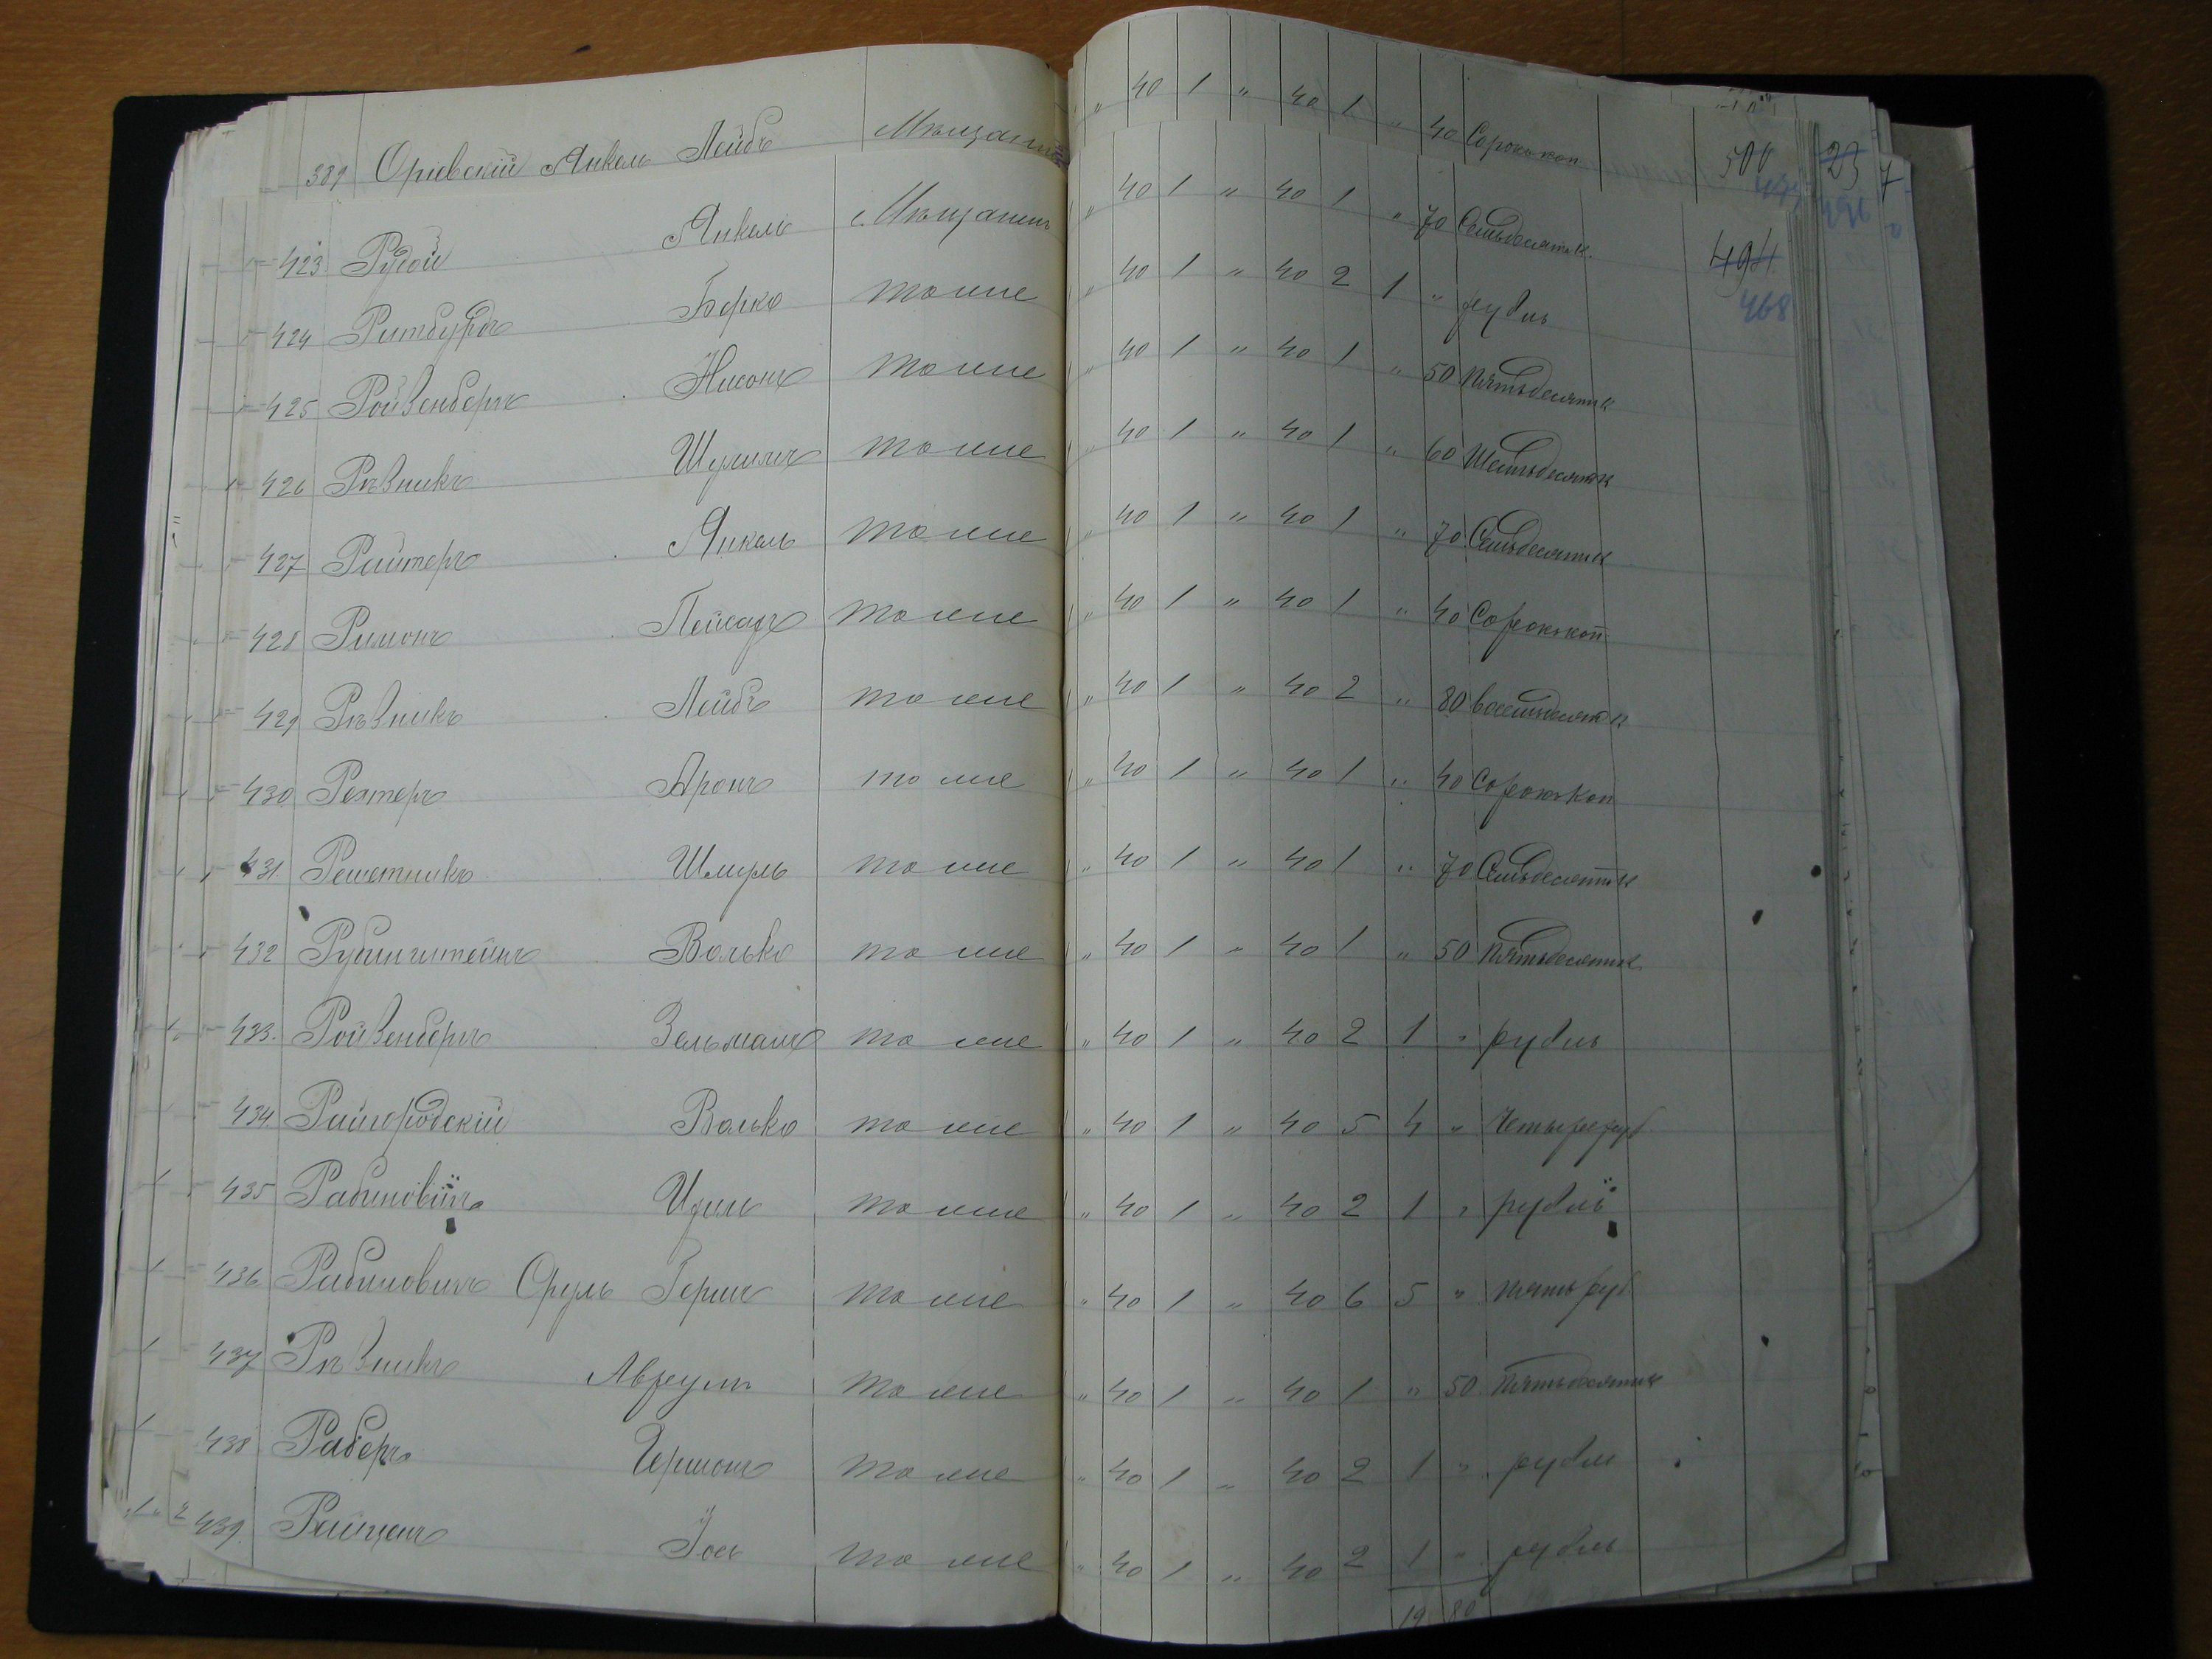 389 Орговскій Янкель Лейбъ Мѣщанинъ " 40 1 " 40 1 " 40 Сорокъ коп 500 23 7
423 Рудой Янкель Мѣщанинъ " 40 1 " 40 1 " 70 Семьдесятъ к. 494
424 Ритбургъ Берко тоже " 40 1 " 40 2 1 " рубль 468
425 Ройзенбергъ Нисонъ тоже " 40 1 " 40 1 " 50 Пятьдесятъ к
426 Рѣзникъ Шулимъ тоже " 40 1 " 40 1 " 60 Шестьдесятъ к
427 Райтеръ Янкель тоже " 40 1 " 40 1 " 70 Семьдесятъ к
428 Римонъ Пейсахъ тоже " 40 1 " 40 1 " 40 Сорокъ коп
429 Рѣзникъ Лейбъ тоже " 40 1 " 40 2 " 80 восемьдесятъ к
430 Рехтеръ Аронъ тоже " 40 1 " 40 1 " 40 Сорокъ коп
431 Решетникъ Шмуль тоже " 40 1 " 40 1 " 70 Семьдесятъ к
432 Рубинштейнъ Волько тоже " 40 1 " 40 1 " 50 Пятьдесятъ к
433. Ройзенбергъ Зельманъ тоже " 40 1 " 40 2 1 " рубль
434 Райгородскій Волько тоже " 40 1 " 40 5 4 " Четыре руб
435 Рабиновичъ Ицыль тоже " 40 1 " 40 2 1 " рубль
436 Рабиновичъ Сруль Гершъ тоже " 40 1 " 40 6 5 " пять руб
437 Рѣзникъ Аврумъ тоже " 40 1 " 40 1 " 50 Пятьдесятъ к
438 Раберъ Гершонъ тоже " 40 1 " 40 2 1 " рубль
439. Райцинъ Іось тоже " 40 1 " 40 2 1 " рубль
19 80